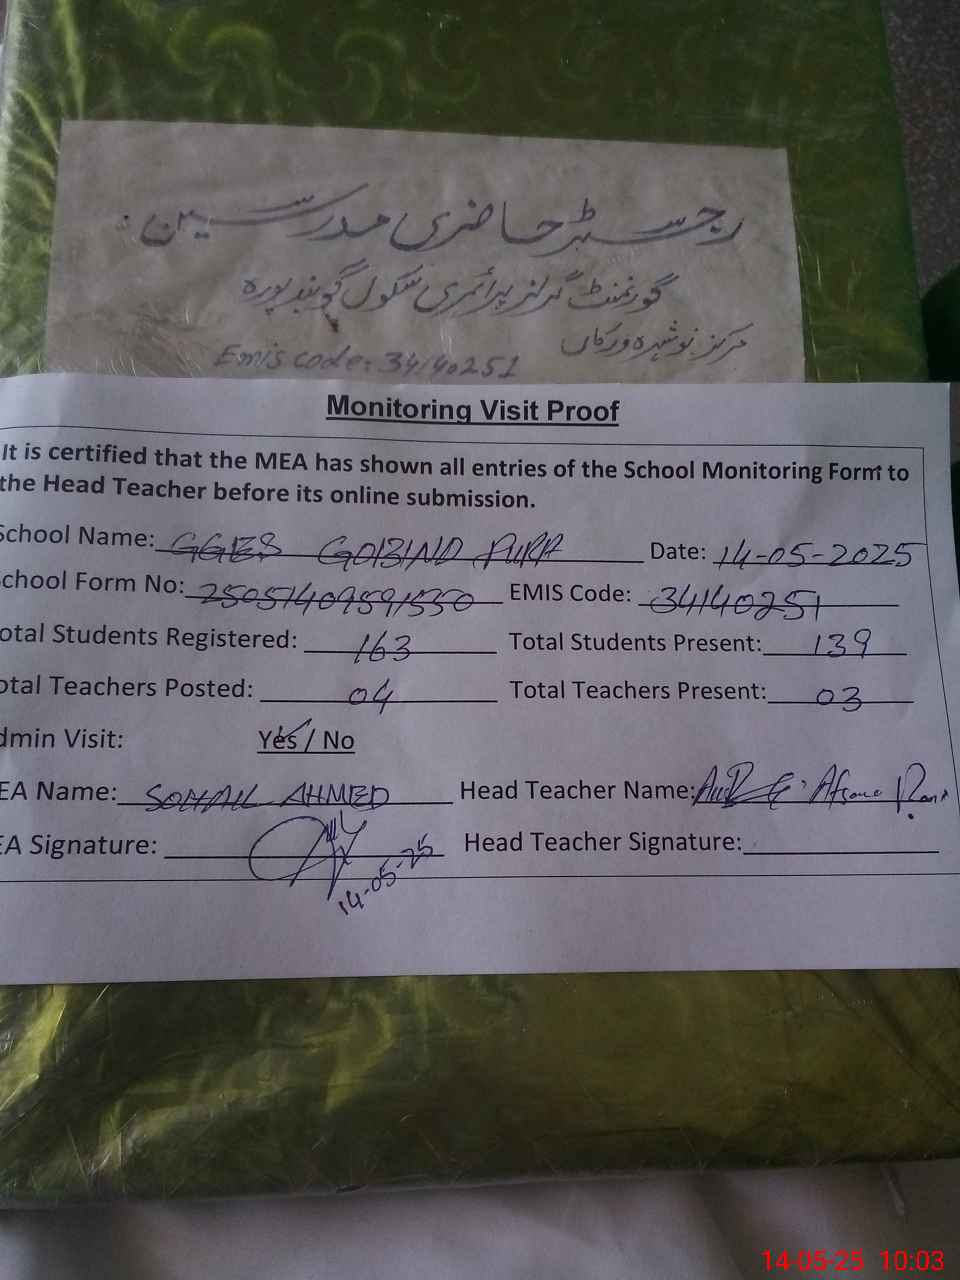 رجسٹر حاضری مدرسین
گورنمنٹ گرلز پرائمری سکول گوبند پورہ
مرکز نوشہرہ ورکاں
Emis code: 34140251
Monitoring Visit Proof
It is certified that the MEA has shown all entries of the School Monitoring Form to
the Head Teacher before its online submission.
School Name: GGES GOBIND PURA Date: 14-05-2025
chool Form No: EMIS Code: 34140251
otal Students Registered: 163 Total Students Present: 139
otal Teachers Posted: 04 Total Teachers Present: 03
dmin Visit: Yes / No
EA Name: SOHAIL AHMED Head Teacher Name: Afsana Rani
EA Signature: 14-05-25 Head Teacher Signature:
14-05-25 10:03